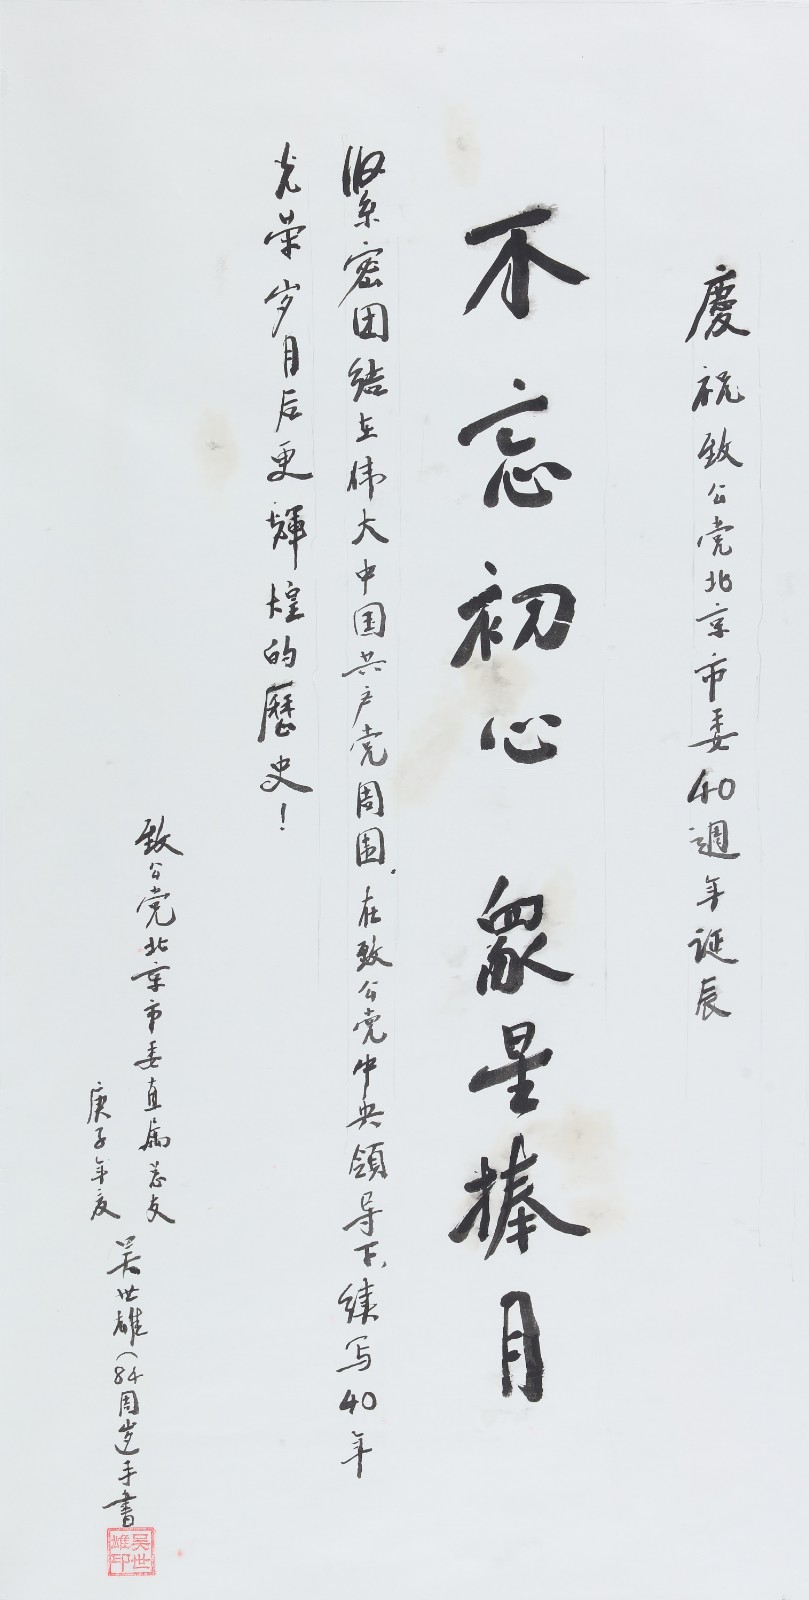 慶祝致公党北京市委40週年诞辰
不忘初心 衆星捧月
緊密团结在伟大中国共产党周围.在致公党中央領导下,续写40年
光荣岁月后更輝煌的歷史!
致公党北京市委直属总支
庚子年夏
吴世雄(84周岁)手書
吴世雄印